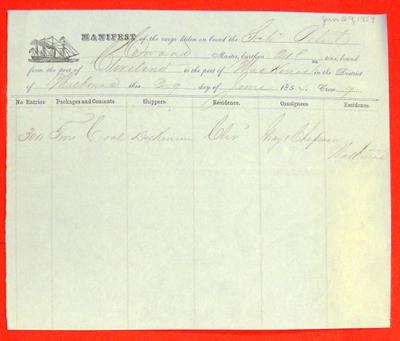 June 29, 1854
MANIFEST of the cargo taken on board the Sch.
Howard Master, burthen 218 was bound
from the port of Cleveland to the port of Mackinac in the District
of Mackinac this 29 day of June 1854. Crew 7
No. Entries. Packages and Contents Shippers. Residence. Consignees Residence.
300 Tons Coal Dickinson Clev Chapman
Mackinac